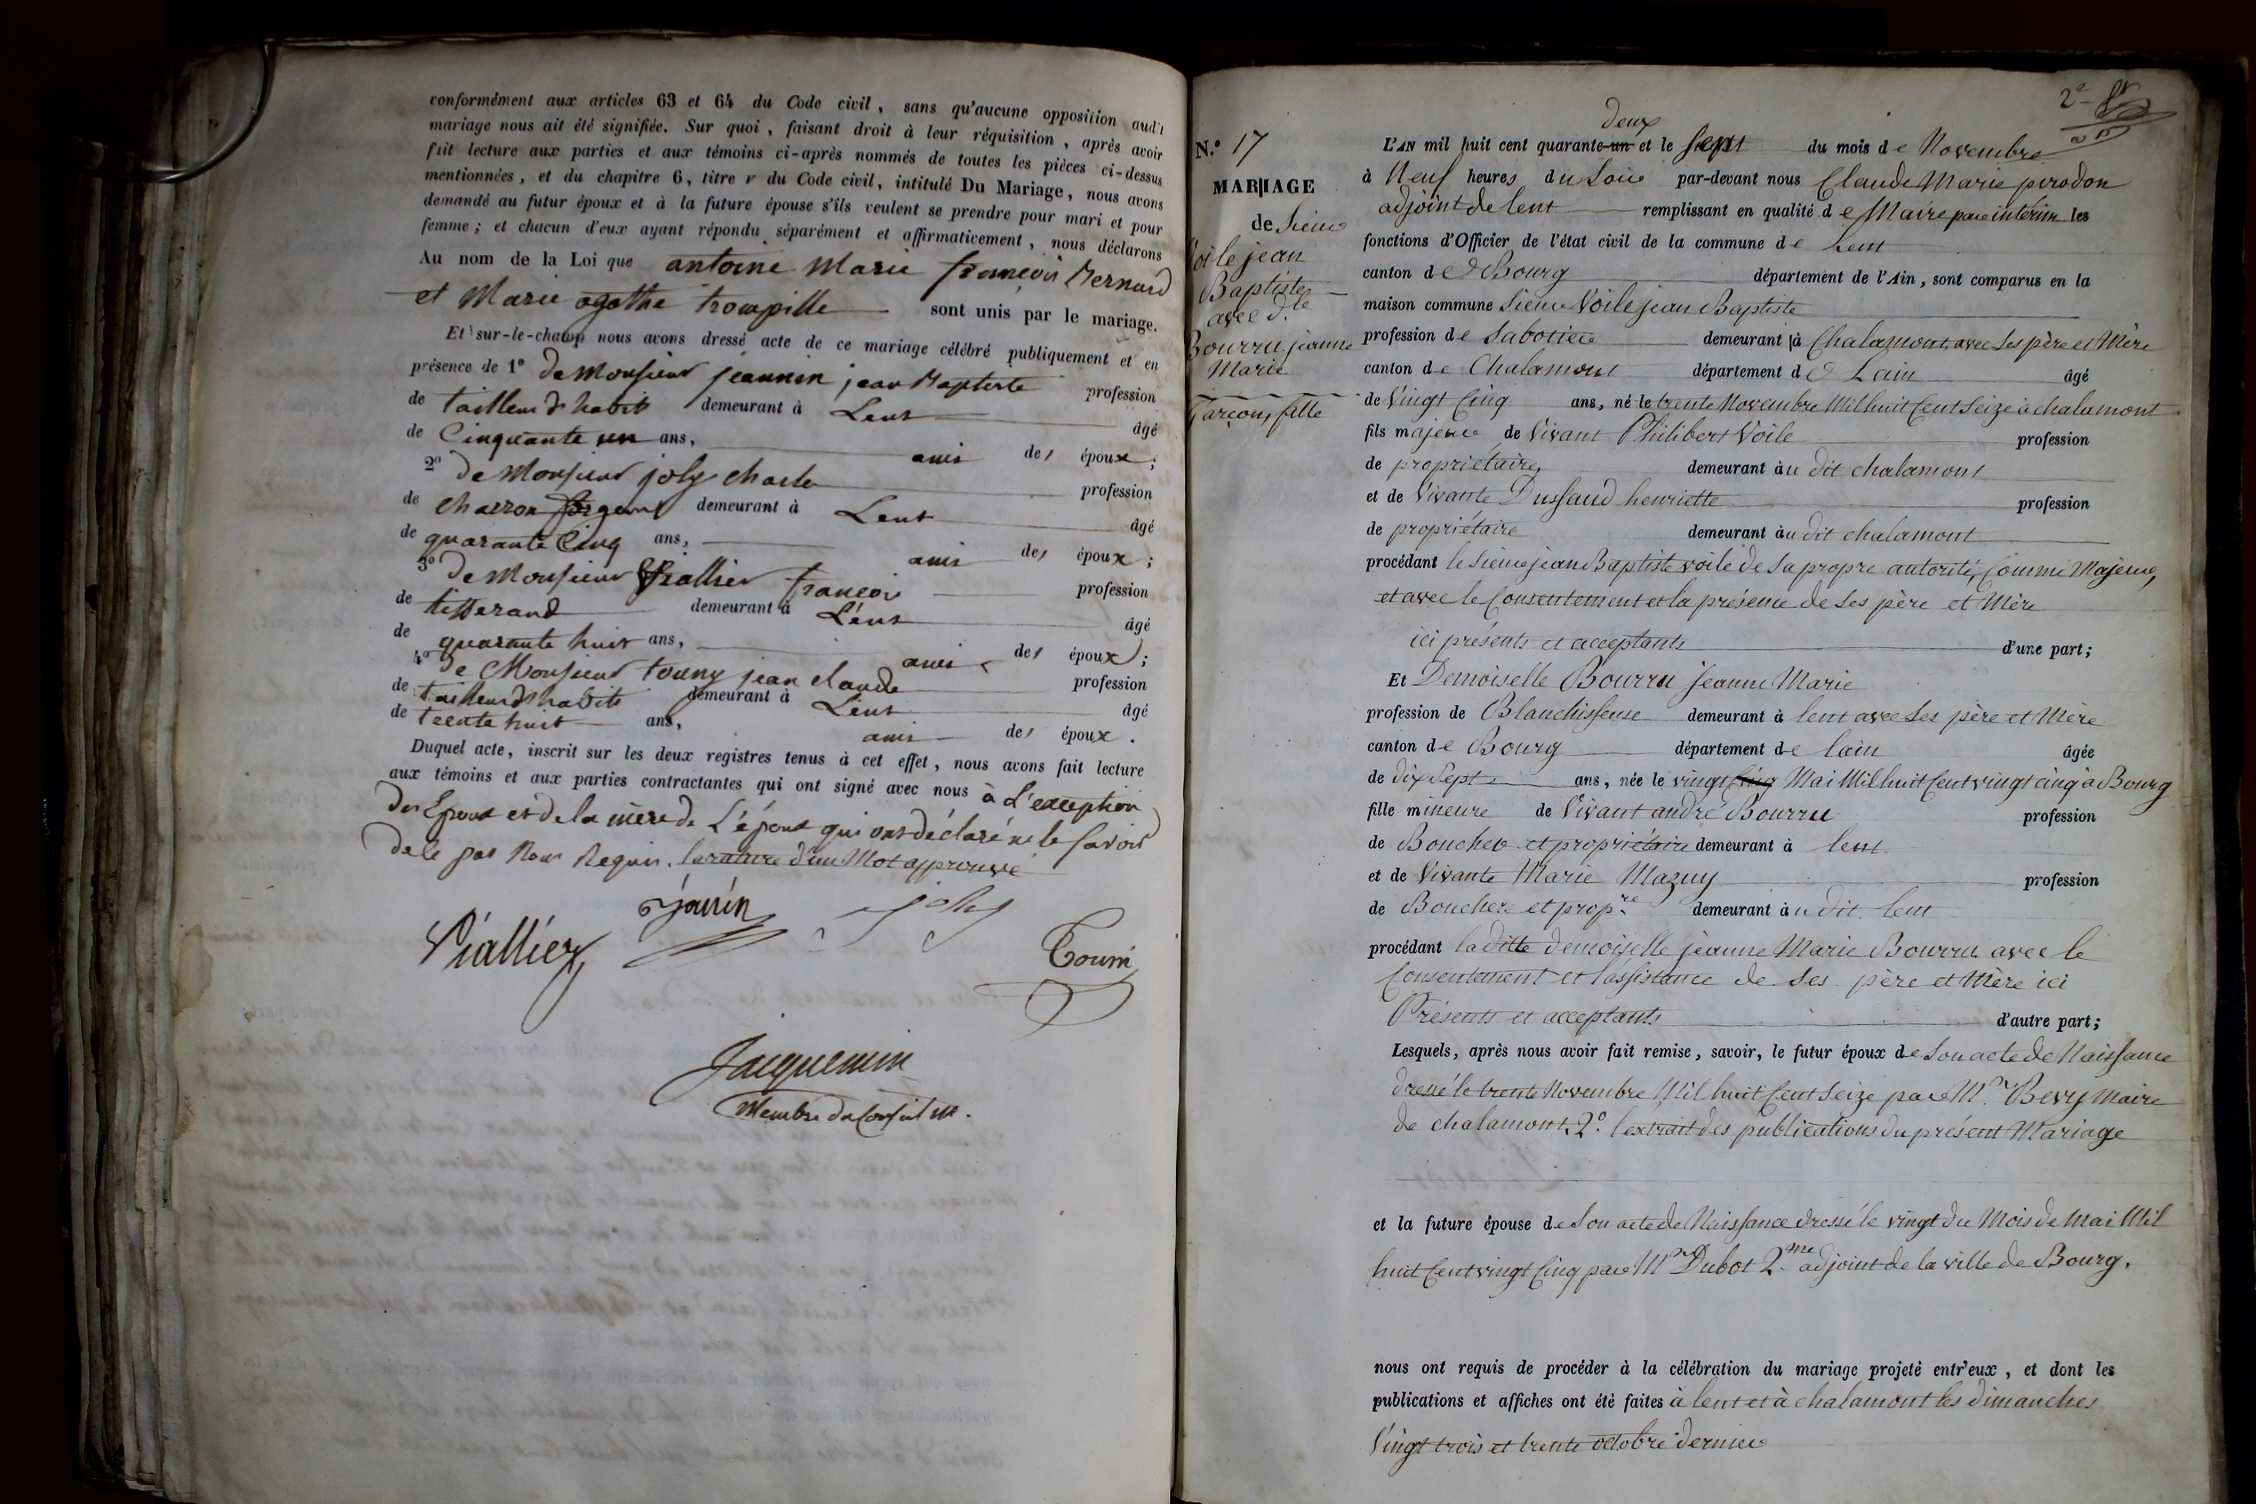 conformément aux articles 63 et 64 du Code civil, sans qu'aucune opposition aud't
mariage nous ait été signifiée. Sur quoi, faisant droit à leur réquisition, après avoir
fait lecture aux parties et aux témoins ci-après nommés de toutes les pièces ci-dessus
mentionnées, et du chapitre 6, titre v du Code civil, intitulé Du Mariage, nous avons
demandé au futur époux et à la future épouse s'ils veulent se prendre pour mari et pour
femme; et chacun d'eux ayant répondu séparément et affirmativement, nous déclarons
Au nom de la Loi que antoine Marie françois Bernard
et Marie agathe trompille sont unis par le mariage.
Et sur-le-champ nous avons dressé acte de ce mariage célébré publiquement et en
présence de 1° de Monsieur jeannin jean Baptiste profession
de tailleur d'habit demeurant à Lent âgé
de Cinquante un ans, ami des époux;
2° de Monsieur joly charle profession
de charron forgeur demeurant à Lent âgé
de quarante Cinq ans, ami des époux;
3° de Monsieur Viallier françois profession
de tisserand demeurant à Lent âgé
de quarante huit ans, ami des époux;
4° de Monsieur touny jean claude profession
de tailleur d'habits demeurant à Lent âgé
de trente huit ans, ami des époux.
Duquel acte, inscrit sur les deux registres tenus à cet effet, nous avons fait lecture
aux témoins et aux parties contractantes qui ont signé avec nous à L'exception
des Epoux et de la mère de L'époux qui ont déclaré ne le savoir
de ce par Nous Requis. la rature d'un Mot approuvé
janin joly
Viallier Tourni
Jacquemin
Membre du Conseil M.
2e
N.° 17
MARIAGE
de Sieur
Voile jean
Baptiste
avec d.le
Bourru jeanne
Marie
Garçon, fille
deux
L'AN mil huit cent quarante-un et le Sept du mois de Novembre
à Neuf heures du Soir par-devant nous Claude Marie perodon
adjoint de lent remplissant en qualité de Maire par intérim les
fonctions d'Officier de l'état civil de la commune de Lent
canton de Bourg département de l'Ain, sont comparus en la
maison commune Sieur Voile jean Baptiste
profession de Sabotier demeurant à Chalamont avec Ses père et Mère
canton de Chalamont département de Lain âgé
de Vingt Cinq ans, né le trente Novembre Mil huit Cent Seize à chalamont
fils majeur de Vivant Philibert Voile profession
de propriétaire demeurant au dit chalamont
et de Vivante Dussaud henriette profession
de propriétaire demeurant au dit chalamont
procédant le Sieur jean Baptiste voile de Sa propre autorité, Comme Majeur,
et avec le Consentement et la présence de Ses père et Mère
ici présents et acceptants d'une part;
Et Demoiselle Bourru Jeanne Marie
profession de Blanchisseuse demeurant à lent avec Ses père et Mère
canton de Bourg département de lain âgée
de dix Sept ans, née le vingt Cinq Mai Mil huit Cent vingt cinq à Bourg
fille mineure de Vivant andré Bourru profession
de Boucher et propriétaire demeurant à lent
et de Vivante Marie Mazuy profession
de Bouchere et prop.re demeurant au dit lent
procédant la ditte demoiselle jeanne Marie Bourru avec le
Consentement et l'assistance de Ses père et Mère ici
Présents et acceptants d'autre part;
Lesquels, après nous avoir fait remise, savoir, le futur époux de Son acte de Naissance
dressé le trente Novembre Mil huit Cent Seize par Mr. Bevy Maire
de chalamont, 2°. l'extrait des publications du présent Mariage
et la future épouse de Son acte de Naissance dressé le vingt du Mois de Mai Mil
huit Cent vingt Cinq par Mr Dubot 2me adjoint de la ville de Bourg.
nous ont requis de procéder à la célébration du mariage projeté entr'eux, et dont les
publications et affiches ont été faites à lent et à chalamont les dimanches
Vingt trois et trente octobre dernier